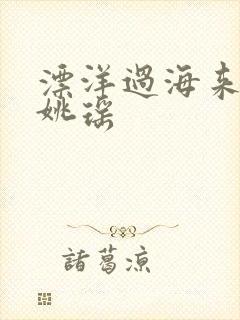 漂洋過海来
姚瑶
諸葛涼